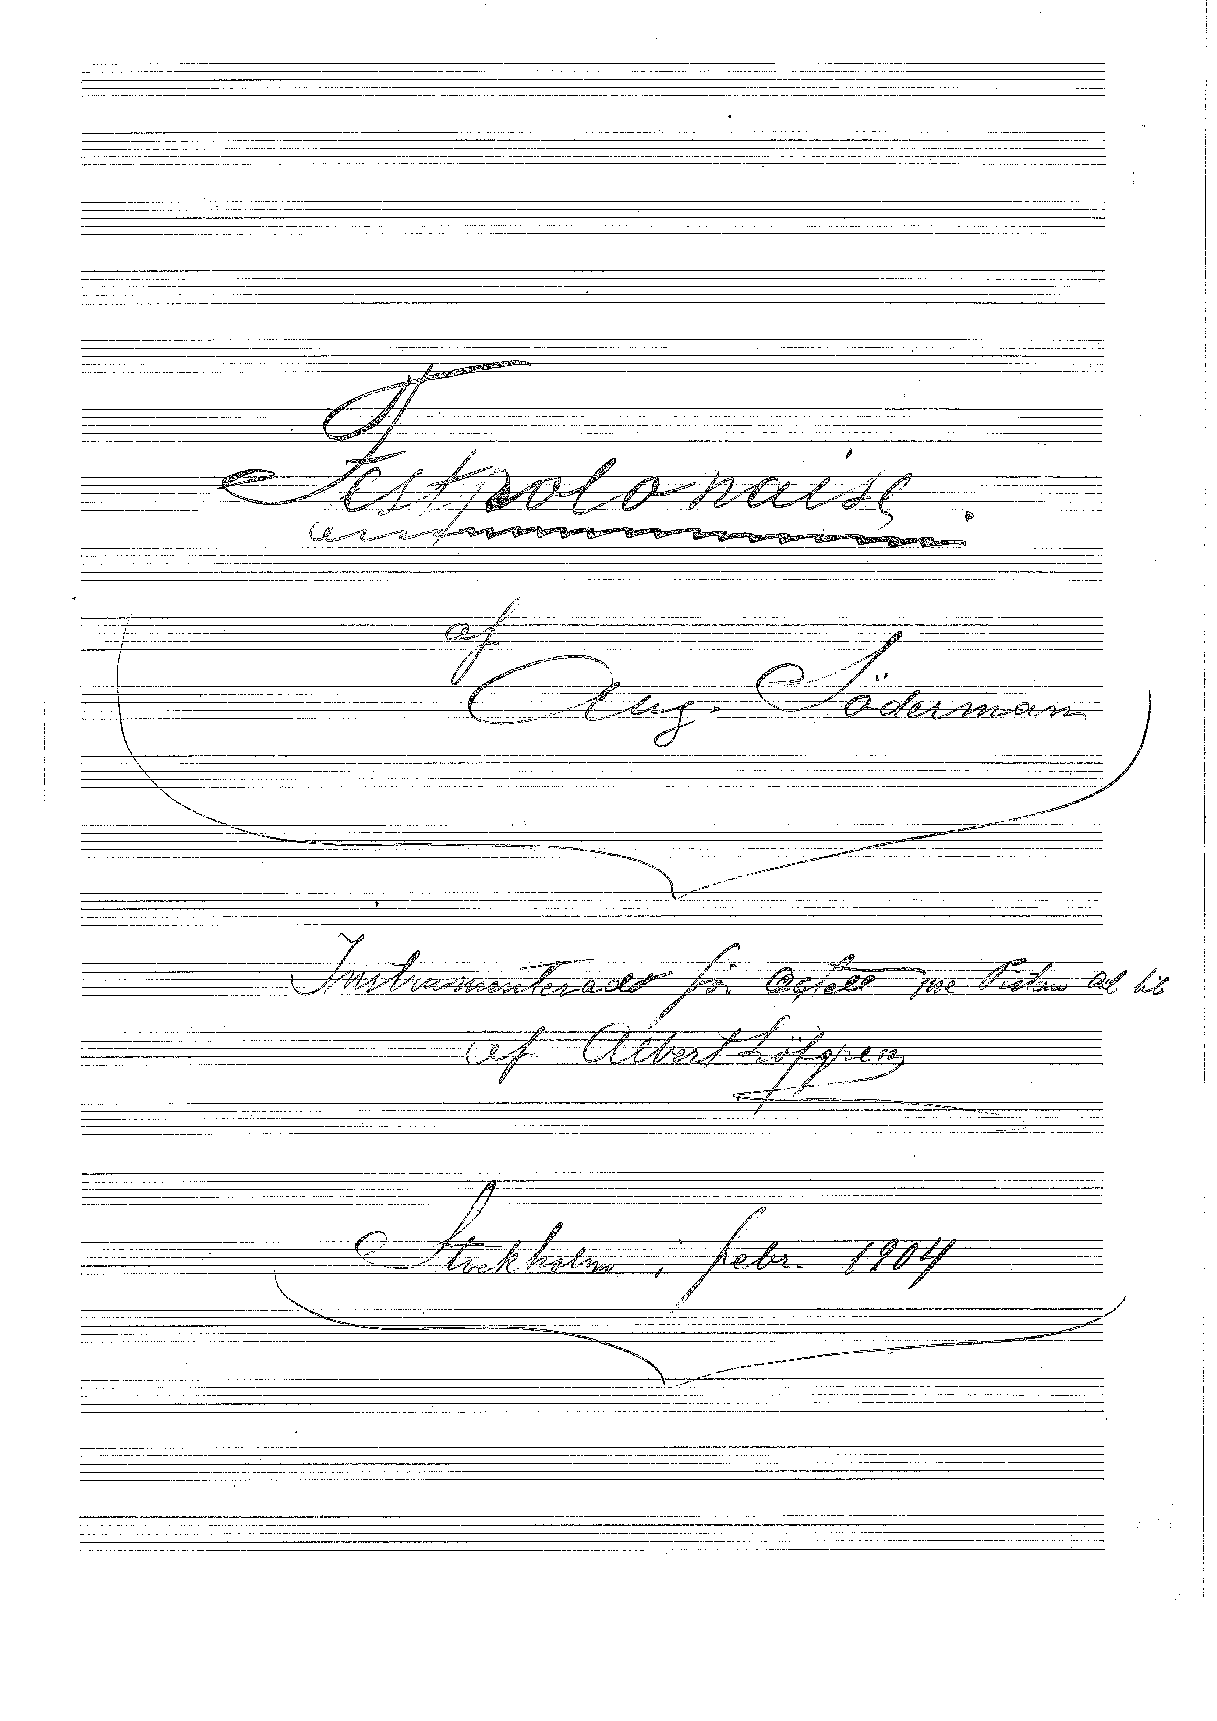 Festpolonaise.
af
Aug. Söderman
Instrumenterad för Oktett ad lib
af Albert Löfgren
Stockholm i febr. 1904